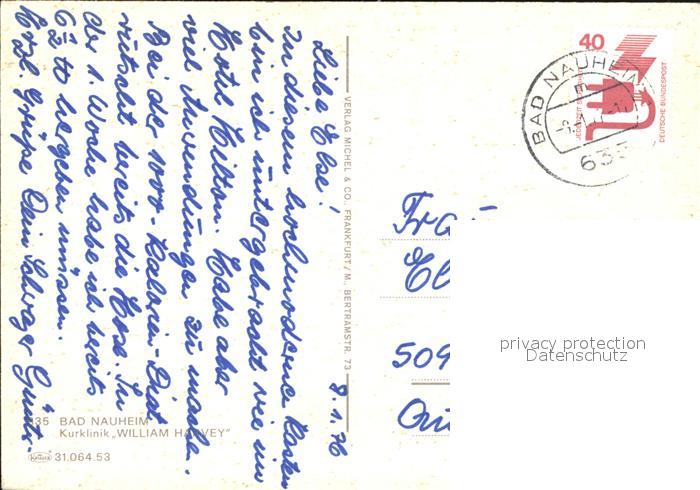 8.1.76
Liebe Else!
In diesem hochmodernen Kasten
bin ich untergebracht wie im
Hotel Hilton. Habe aber
viel Anwendungen zu machen.
Bei der 1000-Kalorien-Diät
rutscht bereits die Hose. In
der 1. Woche habe ich bereits
6½ ℔ hergeben müssen.
Herzl. Grüße Dein Schwager Günter.
VERLAG MICHEL & CO., FRANKFURT/M., BERTRAMSTR. 73
635 BAD NAUHEIM
Kurklinik „WILLIAM HARVEY"
31.064.53
40
JEDERZEIT
DEUTSCHE BUNDESPOST
BAD NAUHEIM
Fra
El
509
privacy protection
Datenschutz